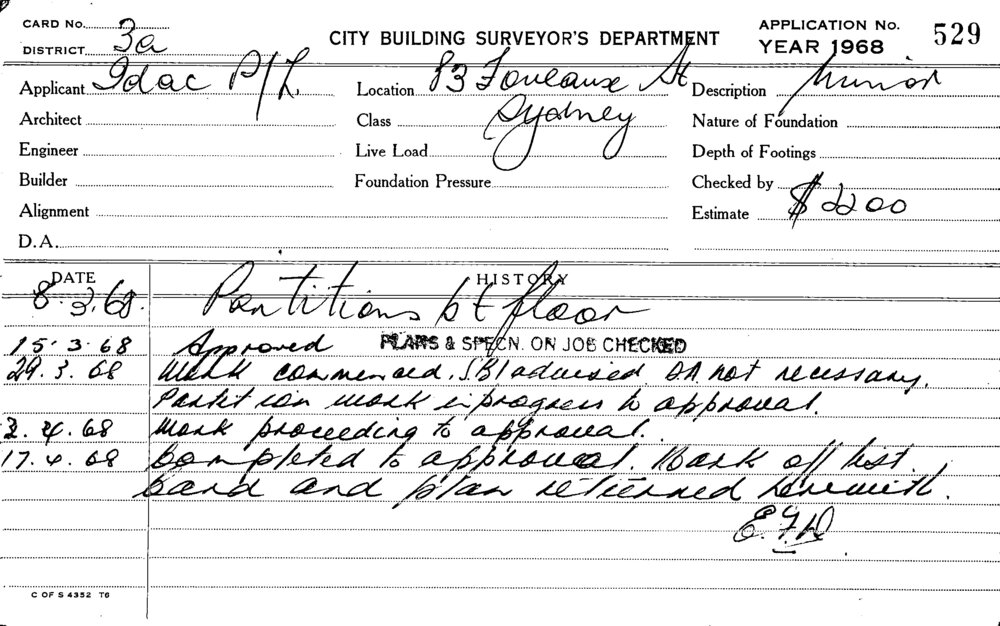 CARD No.
DISTRICT 3a
CITY BUILDING SURVEYOR'S DEPARTMENT
APPLICATION No. 529
YEAR 1968
Applicant Idac P/L
Location 83 Foveaux St
Description Minor
Architect
Class Sydney
Nature of Foundation
Engineer
Live Load
Depth of Footings
Builder
Foundation Pressure
Checked by
Alignment
Estimate $2200
D.A.
DATE HISTORY
8.3.68. Partitions 6t floor
15.3.68 Approved PLANS & SPECN. ON JOB CHECKED
29.3.68 Work commenced. S.B.I advised DA not necessary.
Partition work in progress to approval.
2.4.68 Work proceeding to approval.
17.4.68 Completed to approval. Mark off list.
Card and plan returned herewith.
C OF S 4352 T6